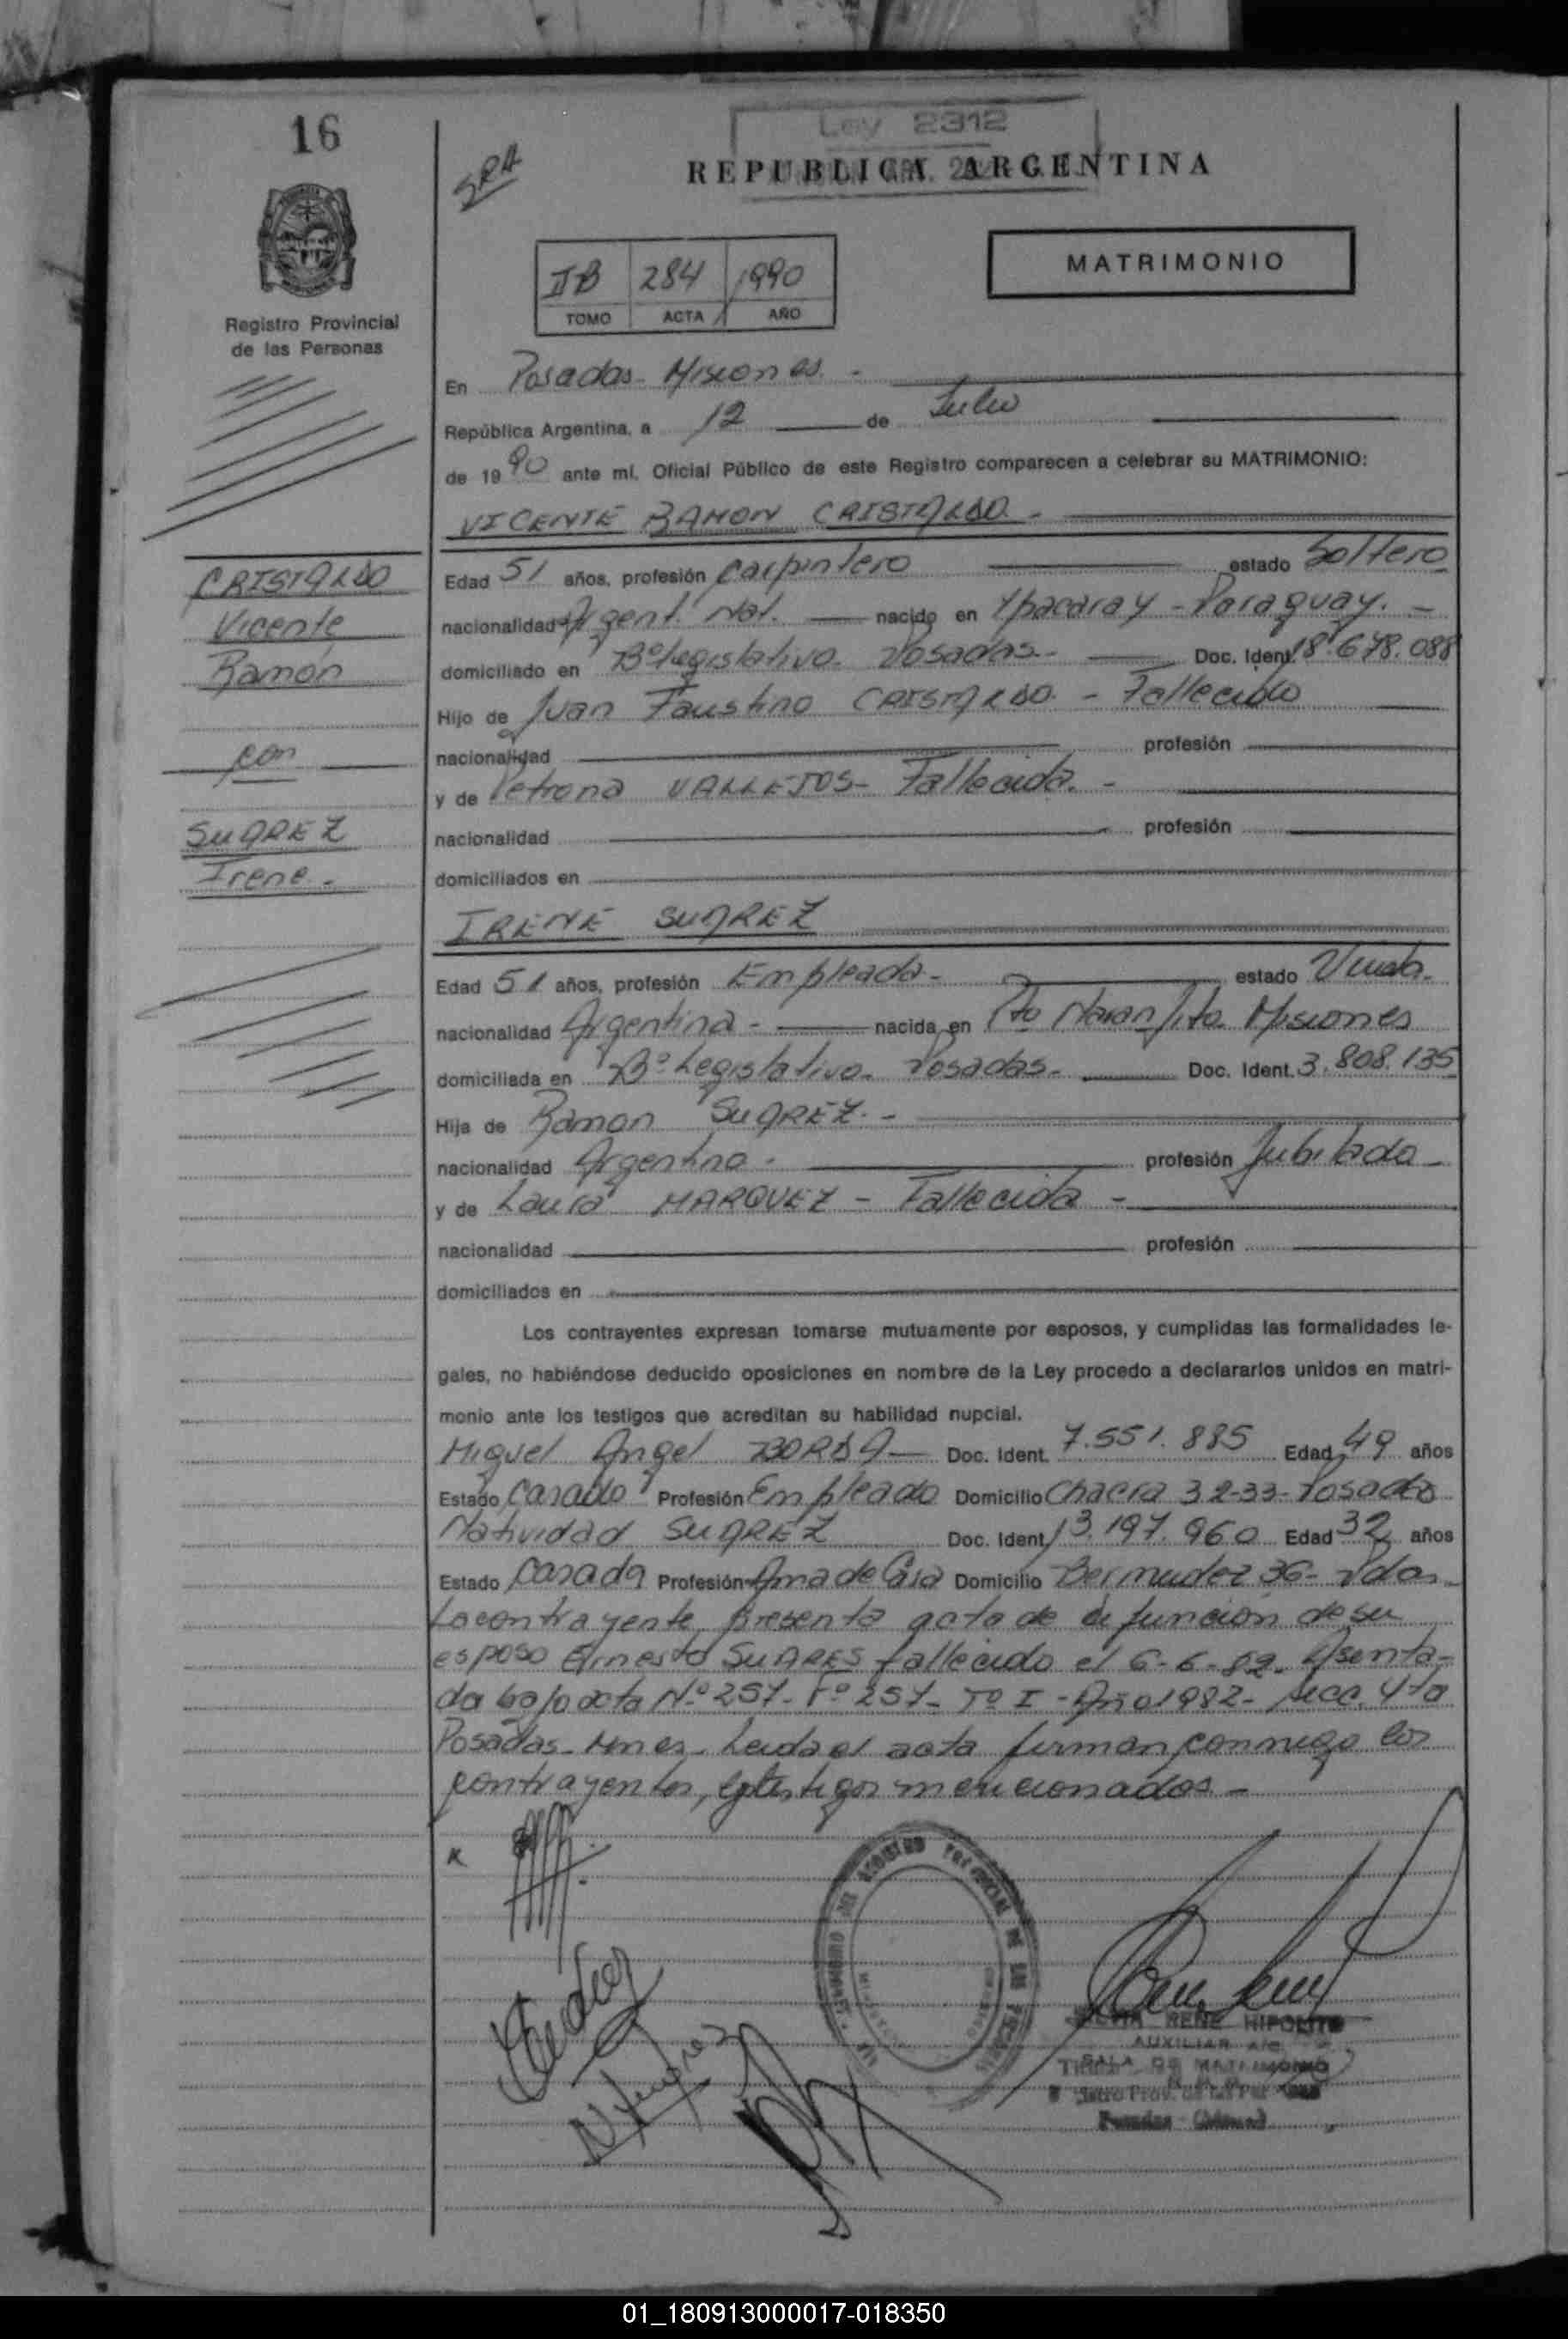 16
SRA
Ley 2312
REPUBLICA ARGENTINA
Registro Provincial
de las Personas
IIB 284 1990
TOMO ACTA AÑO
MATRIMONIO
En Posadas - Misiones -
República Argentina, a 12 de Julio
de 1990 ante mí, Oficial Público de este Registro comparecen a celebrar su MATRIMONIO:
VICENTE RAMON CRISTALDO -
CRISTALDO
Vicente
Ramón
con
SUAREZ
Irene -
Edad 51 años, profesión Carpintero estado Soltero
nacionalidad Argent. Nat. nacido en Ypacaray - Paraguay. -
domiciliado en Bº Legislativo - Posadas - Doc. Ident. 18.678.088
Hijo de Juan Faustino CRISTALDO - Fallecido
nacionalidad profesión
y de Petrona VALLEJOS - Fallecida. -
nacionalidad profesión
domiciliados en
IRENE SUAREZ
Edad 51 años, profesión Empleada - estado Viuda -
nacionalidad Argentina - nacida en Pto Naranjito Misiones
domiciliada en Bº Legislativo - Posadas - Doc. Ident. 3.808.135
Hija de Ramon SUAREZ. -
nacionalidad Argentino - profesión Jubilado -
y de Laura MARQUEZ - Fallecida -
nacionalidad profesión
domiciliados en
Los contrayentes expresan tomarse mutuamente por esposos, y cumplidas las formalidades le-
gales, no habiéndose deducido oposiciones en nombre de la Ley procedo a declararlos unidos en matri-
monio ante los testigos que acreditan su habilidad nupcial.
Miguel Angel BORDA - Doc. Ident. 7.551.885 Edad 49 años
Estado Casado Profesión Empleado Domicilio Chacra 32-33 - Posadas
Natividad SUAREZ Doc. Ident. 13.197.960 Edad 32 años
Estado Casada Profesión Ama de Casa Domicilio Bermudez 36 - Pdas -
La contrayente presenta acta de defunción de su
esposo Ernesto SUARES fallecido el 6-6-82. Asenta-
da bajo acta Nº 257 - Fº 257 - Tº I - Año 1982 - Secc. 4ta
Posadas - Mnes - Leida el acta firman conmigo los
contrayentes, y testigos mencionados -
RENE HIPOLITO
AUXILIAR A/C
SALA DE MATRIMONIO
Posadas (Mnes)
01_180913000017-018350